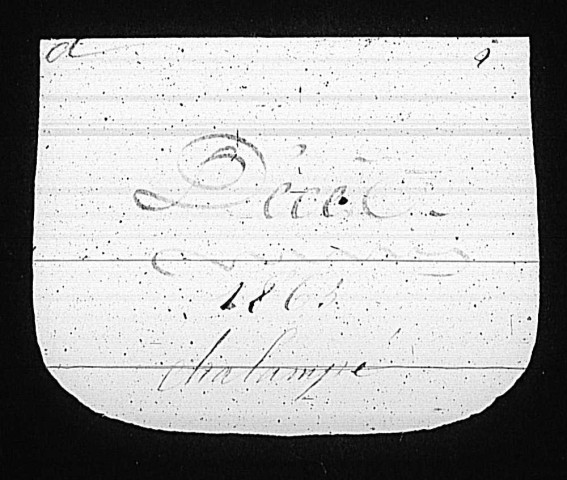 d
Décet.
1863
chalampé